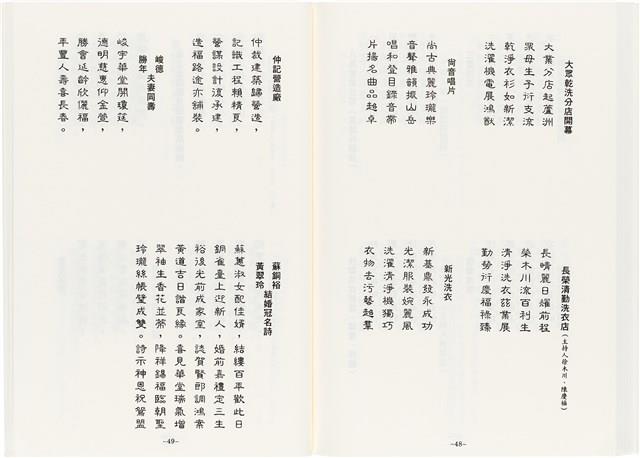 大眾乾洗分店開幕
大業分店起蘆洲
眾母生子衍支流
乾淨衣衫如新潔
洗濯機電展鴻猷
尚音唱片
尚古典麗玲瓏樂
音聲雅韻振山岳
唱和登目錄音帶
片揚名曲品超卓
長榮清勤洗衣店(主持人徐木川、陳慶福)
長晴麗日耀前程
榮木川流百利生
清淨洗衣茲業展
勤勞衍慶福祿臻
新光洗衣
新基鼎發永成功
光潔服裝婉麗風
洗濯清淨機獨巧
衣物去污藝超羣
-48-
仲記營造廠
仲裁建築歸營造,
記識工程賴精良,
營謀設計復承建,
造福路途亦鋪裝。
峻德
勝年
夫妻同壽
峻宇華堂開瓊筵,
德明慈惠仰金萱,
勝會延齡欣儷福,
年豐人壽喜長春。
蘇銅裕
黃翠玲
結婚冠名詩
蘇蕙淑女配佳婿,結縷百年歡此日
銅雀臺上迎新人,婚前嘉禮定三生
裕後光前成家室,誌賀賢郎調鴻案
黃道吉日諧良緣。喜見華堂瑞氣增
翠袖生香花並蒂,降祥錫福臨朝聖
玲瓏絲帳璧成雙。詩示神恩祝鴛盟
-49-